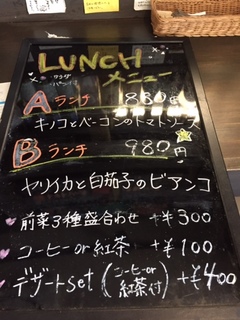 LUNCH
メニュー
Aランチ 880円
キノコとベーコンのトマトソース
Bランチ 980円
ヤリイカと白茄子のビアンコ
前菜3種盛合わせ +¥300
コーヒーor紅茶 +¥100
デザートset(コーヒーor紅茶付) +¥400